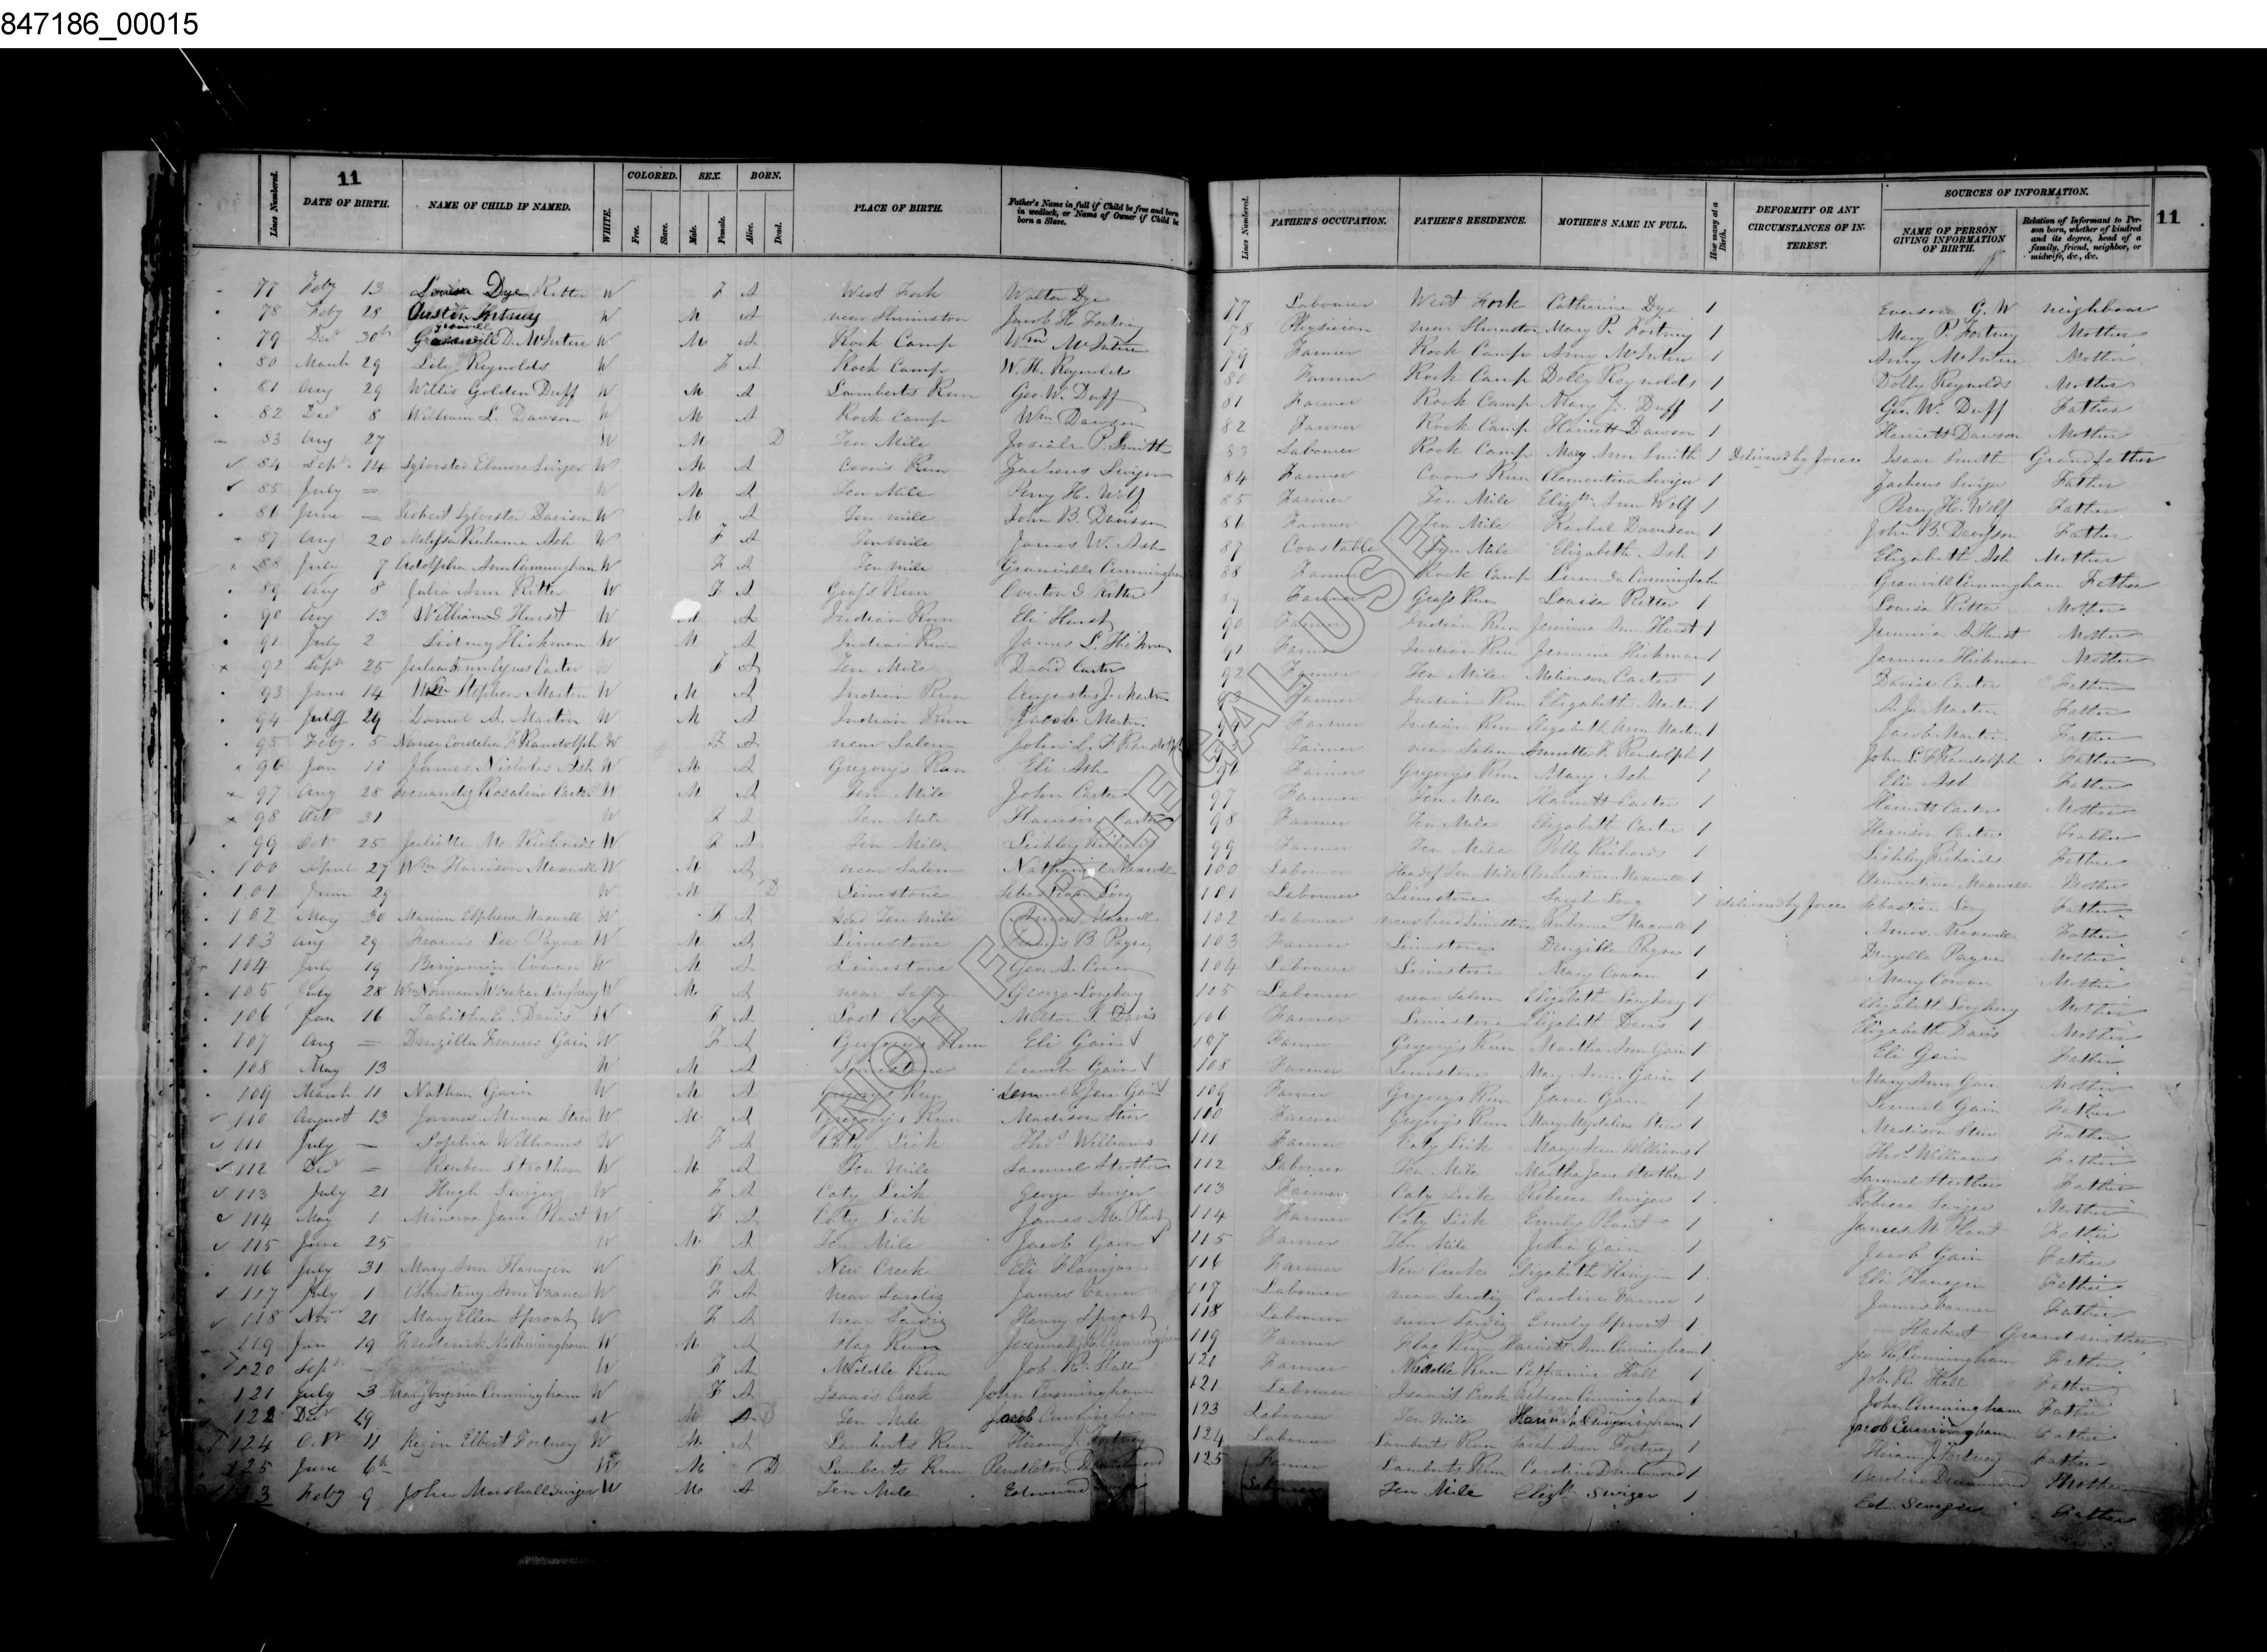 847186_00015
11
Lines Numbered.
DATE OF BIRTH.
NAME OF CHILD IF NAMED.
WHITE.
COLORED.
Free.
Slave.
SEX.
Male.
Female.
BORN.
Alive.
Dead.
PLACE OF BIRTH.
Father's Name in full if Child be free and born in wedlock, or Name of Owner if Child be born a Slave.
Lines Numbered.
FATHER'S OCCUPATION.
FATHER'S RESIDENCE.
MOTHER'S NAME IN FULL.
How many at a Birth.
DEFORMITY OR ANY CIRCUMSTANCES OF INTEREST.
SOURCES OF INFORMATION.
NAME OF PERSON GIVING INFORMATION OF BIRTH.
Relation of Informant to Person born, whether of kindred and its degree, head of a family, friend, neighbor, or midwife, &c., &c.
11
77 Feby 13 Louisa Dye Ritter W F A West Fork Walter Dye 77 Labourer West Fork Catherine Dye 1 G. W neighbour
78 Feby 28 Austin Fortney W M A near Jacob H. Fortney 78 Physician near Mary P. Fortney 1 Mary P. Fortney Mother
79 Decr 30th Granvill D. McIntire W M A Rock Camp Wm McIntire 79 Farmer Rock Camp Amy McIntire 1 Amy McIntire Mother
80 March 29 Lily Reynolds W F A Rock Camp W. H. Reynolds 80 Farmer Rock Camp Dolly Reynolds 1 Dolly Reynolds Mother
81 Aug 29 Willis Golden Duff W M A Lamberts Run Geo. W. Duff 81 Farmer Rock Camp Mary J. Duff 1 Geo. W. Duff Father
82 Decr 8 William L. Dawson W M A Rock Camp Wm Dawson 82 Farmer Rock Camp Harriett Dawson 1 Harriett Dawson Mother
83 Aug 27 W M D Ten Mile Josiah P. Smith 83 Labourer Rock Camp Mary Ann Smith 1 Delivered by forces Isaac Smith Grandfather
84 Sept 14 Sylvester Elmore Swiger W M A Coons Run Zacheus Swiger 84 Farmer Coons Run Clementina Swiger 1 Zacheus Swiger Father
85 July = W M A Ten Mile Perry H. Wolf 85 Farmer Ten Mile Elizth Ann Wolf 1 Perry H. Wolf Father
86 June — Robert Sylvester Davison W M A Ten mile John B. Davisson 86 Farmer Ten Mile Rachel Davisson 1 John B. Davisson Father
87 Aug 20 Melissa Ruhama Ash W F A Ten Mile James W. Ash 87 Constable Ten Mile Elizabeth Ash 1 Elizabeth Ash Mother
88 July 7 Adolphia Ann Cunningham W F A Ten Mile Granville Cunningham 88 Farmer Rock Camp Lucinda Cunningham Granvill Cunningham Father
89 Aug 8 Julia Ann Ritter W F A Grass Run Overton G Ritter 89 Farmer Grass Run Louisa Ritter 1 Louisa Ritter Mother
90 Aug 13 William S Hurst W A Indian Run Eli Hurst 90 Farmer Indian Run Jemima Ann Hurst 1 Jemima A. Hurst Mother
91 July 2 Sidney Hickman W M A Indian Run James L. Hickman 91 Farmer Indian Run Jemima Hickman 1 Jemima Hickman Mother
92 Sept 25 Julia Carter F A Ten Mile David Carter 92 Farmer Ten Mile Carter 1 David Carter Father
93 June 14 Wm Stephen Martin W M A Indian Run Augustus J. Martin Farmer Indian Run Elizabeth Martin 1 A. J. Martin Father
94 July 29 Daniel A. Martin W M A Indian Run Jacob Martin Farmer Indian Run Elizabeth Ann Martin 1 Jacob Martin Father
95 Feby 5 Nancy Cordelia F Randolph W F A near Salem John L. F Randolph Farmer near Salem Annetta F. Randolph 1 John L F Randolph Father
96 Jan 10 James Nicholas Ash W M A Gregory's Run Eli Ash 96 Farmer Gregorys Run Mary Ash 1 Eli Ash Father
97 Aug 28 Rosaline Carter W M A Ten Mile John Carter 97 Farmer Ten Mile Harriett Carter 1 Harriett Carter Mother
98 Octr 31 W F A Ten Mile Harrison Carter 98 Farmer Ten Mile Elizabeth Carter 1 Harrison Carter Father
99 Octr 25 Juliette M. Richards W F A Ten Mile Richards 99 Farmer Ten Mile Polly Richards 1 Richards Father
100 April 27 Wm Harrison Maxwell W M A near Salem Nathaniel Maxwell 100 Labourer Head of Ten Mile Clementina Maxwell 1 Clementina Maxwell Mother
101 June 29 W M D Limestone Sebastian Long 101 Labourer Limestone Sarah Long 1 Delivered by forces Sebastian Long Father
102 May 30 Maxwell W F A Head Ten Mile Amos Maxwell 102 Labourer near head Limestone Ruhama Maxwell 1 Amos Maxwell Father
103 Aug 29 Francis Lee Payne W M A Limestone Francis B Payne 103 Farmer Limestone Druzilla Payne 1 Druzilla Payne Mother
104 July 19 Benjamin Cowan W M A Limestone Geo. A. Cowan 104 Labourer Limestone Mary Cowan 1 Mary Cowan Mother
105 July 28 Wm Norman W M A near Salem George 105 Labourer near Salem Elizabeth 1 Elizabeth Mother
106 Jan 16 Tabitha E. Davis W F A Lost Creek Milton F. Davis 106 Farmer Limestone Elizabeth Davis 1 Elizabeth Davis Mother
107 Aug = Druzilla Frances Gain W F A Gregorys Run Eli Gain 107 Farmer Gregorys Run Martha Ann Gain 1 Eli Gain Father
108 May 13 W M A Limestone Enoch Gain 108 Farmer Limestone Mary Ann Gain 1 Mary Ann Gain Mother
109 March 11 Nathan Gain W M A Gregorys Run Lemuel & Jane Gain 109 Farmer Gregorys Run Jane Gain 1 Lemuel Gain Father
110 August 13 James Munroe W M A Gregorys Run Madison 110 Farmer Gregorys Run Mary 1 Madison Father
111 July — Sophia Williams W F A Caty Lick Thos Williams 111 Farmer Caty Lick Mary Ann Williams 1 Thos Williams Father
112 Decr — Reuben Strother W M A Ten Mile Samuel Strother 112 Labourer Ten Mile Martha Jane Strother 1 Samuel Strother Father
113 July 21 Hugh Swiger W F A Caty Lick George Swiger 113 Farmer Caty Lick Rebecca Swiger 1 Rebecca Swiger Mother
114 May 1 Minerva Jane Plant W F A Caty Lick James M. Plant 114 Farmer Caty Lick Emily Plant 1 James M Plant Father
115 June 25 W M A Ten Mile Jacob Gain 115 Farmer Ten Mile Julia Gain 1 Jacob Gain Father
116 July 31 Mary Ann Flanagen W F A New Creek Eli Flanigan 116 Farmer New Creek Elizabeth Flanigin 1 Eli Flanagen Father
117 July 1 Ann Varner W F A near Sardiz James Varner 117 Labourer near Sardiz Caroline Varner 1 James Varner Father
118 Novr 21 Mary Ellen Sprout W F A near Sardiz Henry Sprout 118 Labourer near Sardiz Emily Sprout 1 Harbert Grandmother
119 Jan 19 Frederick Cunningham W M A Flag Run Cunningham 119 Farmer Flag Run Harriett Ann Cunningham 1 Cunningham Father
120 Sept W F A Middle Run Job. R. Hall 120 Farmer Middle Run Catharine Hall 1 Job. R. Hall Father
121 July 3 Mary Virginia Cunningham W F A Isaacs Creek John Cunningham 121 Labourer Isaacs Creek Rebecca Cunningham 1 John Cunningham Father
122 Decr 19 W M A Ten Mile Jacob Cunningham 123 Labourer Ten Mile Cunningham 1 Jacob Cunningham Father
124 Octr 11 Elbert Fortney W M A Lamberts Run Hiram J. Fortney 124 Labourer Lamberts Run Sarah Ann Fortney 1 Hiram J. Fortney Father
125 June 6th W M D Lamberts Run Pendleton Drummond 125 Farmer Lamberts Run Caroline Drummond 1 Caroline Drummond Mother
Feby 9 John Marshall Swiger W M A Ten Mile Edmund Labourer Ten Mile Elizth Swiger 1 Ed. Swiger Father
NOT FOR LEGAL USE